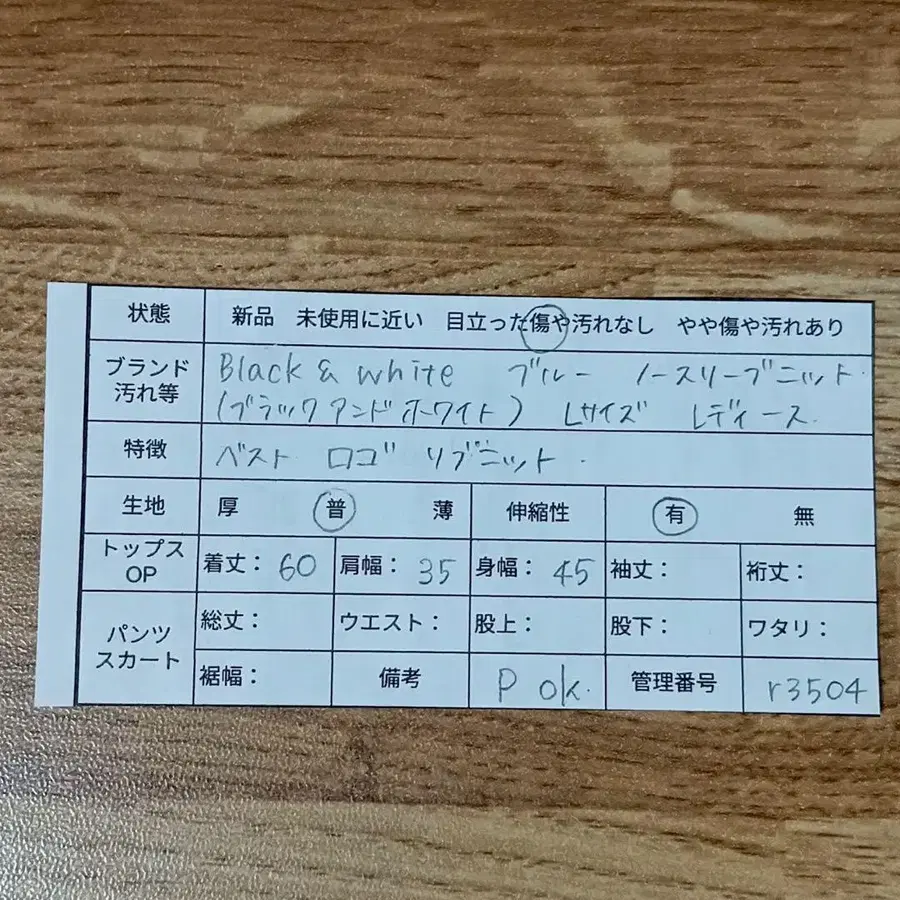 状態 新品 未使用に近い 目立った傷や汚れなし やや傷や汚れあり
ブランド 汚れ等 Black & white ブルー ノースリーブニット
(ブラックアンドホワイト) Lサイズ レディース
特徴 ベスト ロゴ リブニット
生地 厚 普 薄 伸縮性 有 無
トップス OP 着丈: 60 肩幅: 35 身幅: 45 袖丈: 裄丈:
パンツ スカート 総丈: ウエスト: 股上: 股下: ワタリ:
裾幅: 備考 P ok. 管理番号 r3504